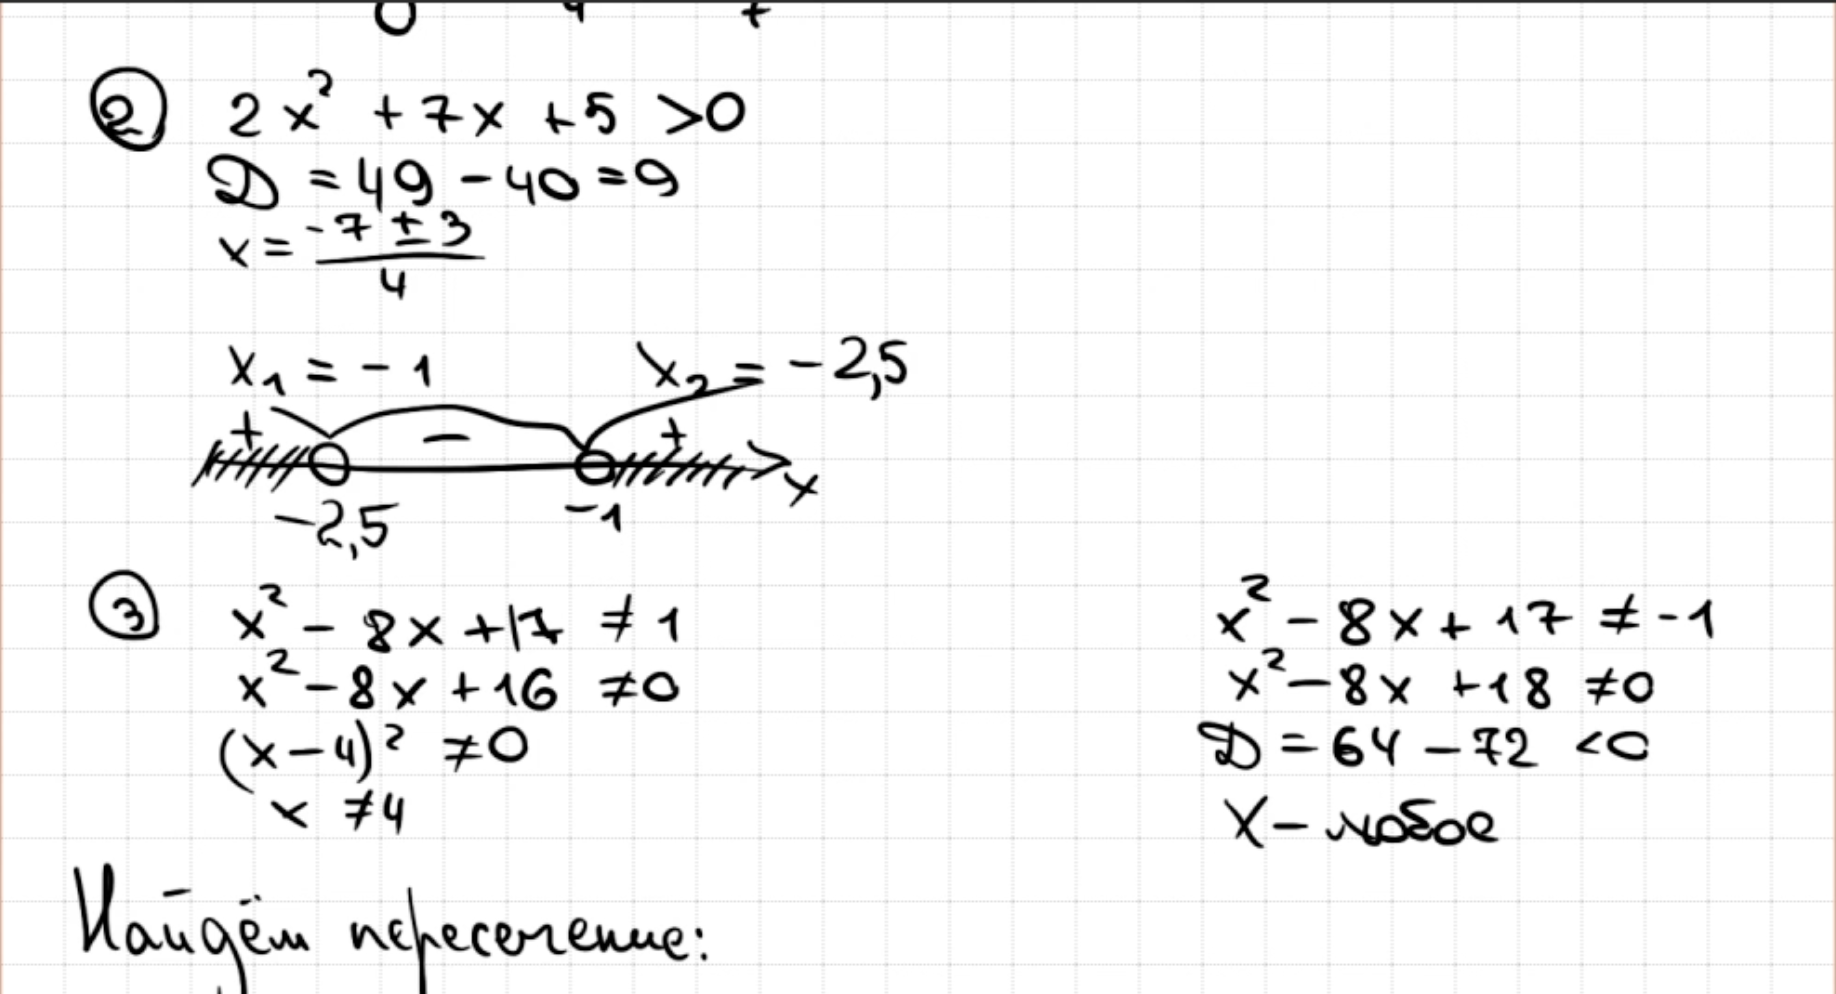 ② 2x² + 7x + 5 > 0
D = 49 - 40 = 9
x = (-7 ± 3)/4
x₁ = -1 x₂ = -2,5
+ - +
x
-2,5 -1
③ x² - 8x + 17 ≠ 1
x² - 8x + 16 ≠ 0
(x - 4)² ≠ 0
x ≠ 4
x² - 8x + 17 ≠ -1
x² - 8x + 18 ≠ 0
D = 64 - 72 < 0
X - любое
Найдём пересечение: